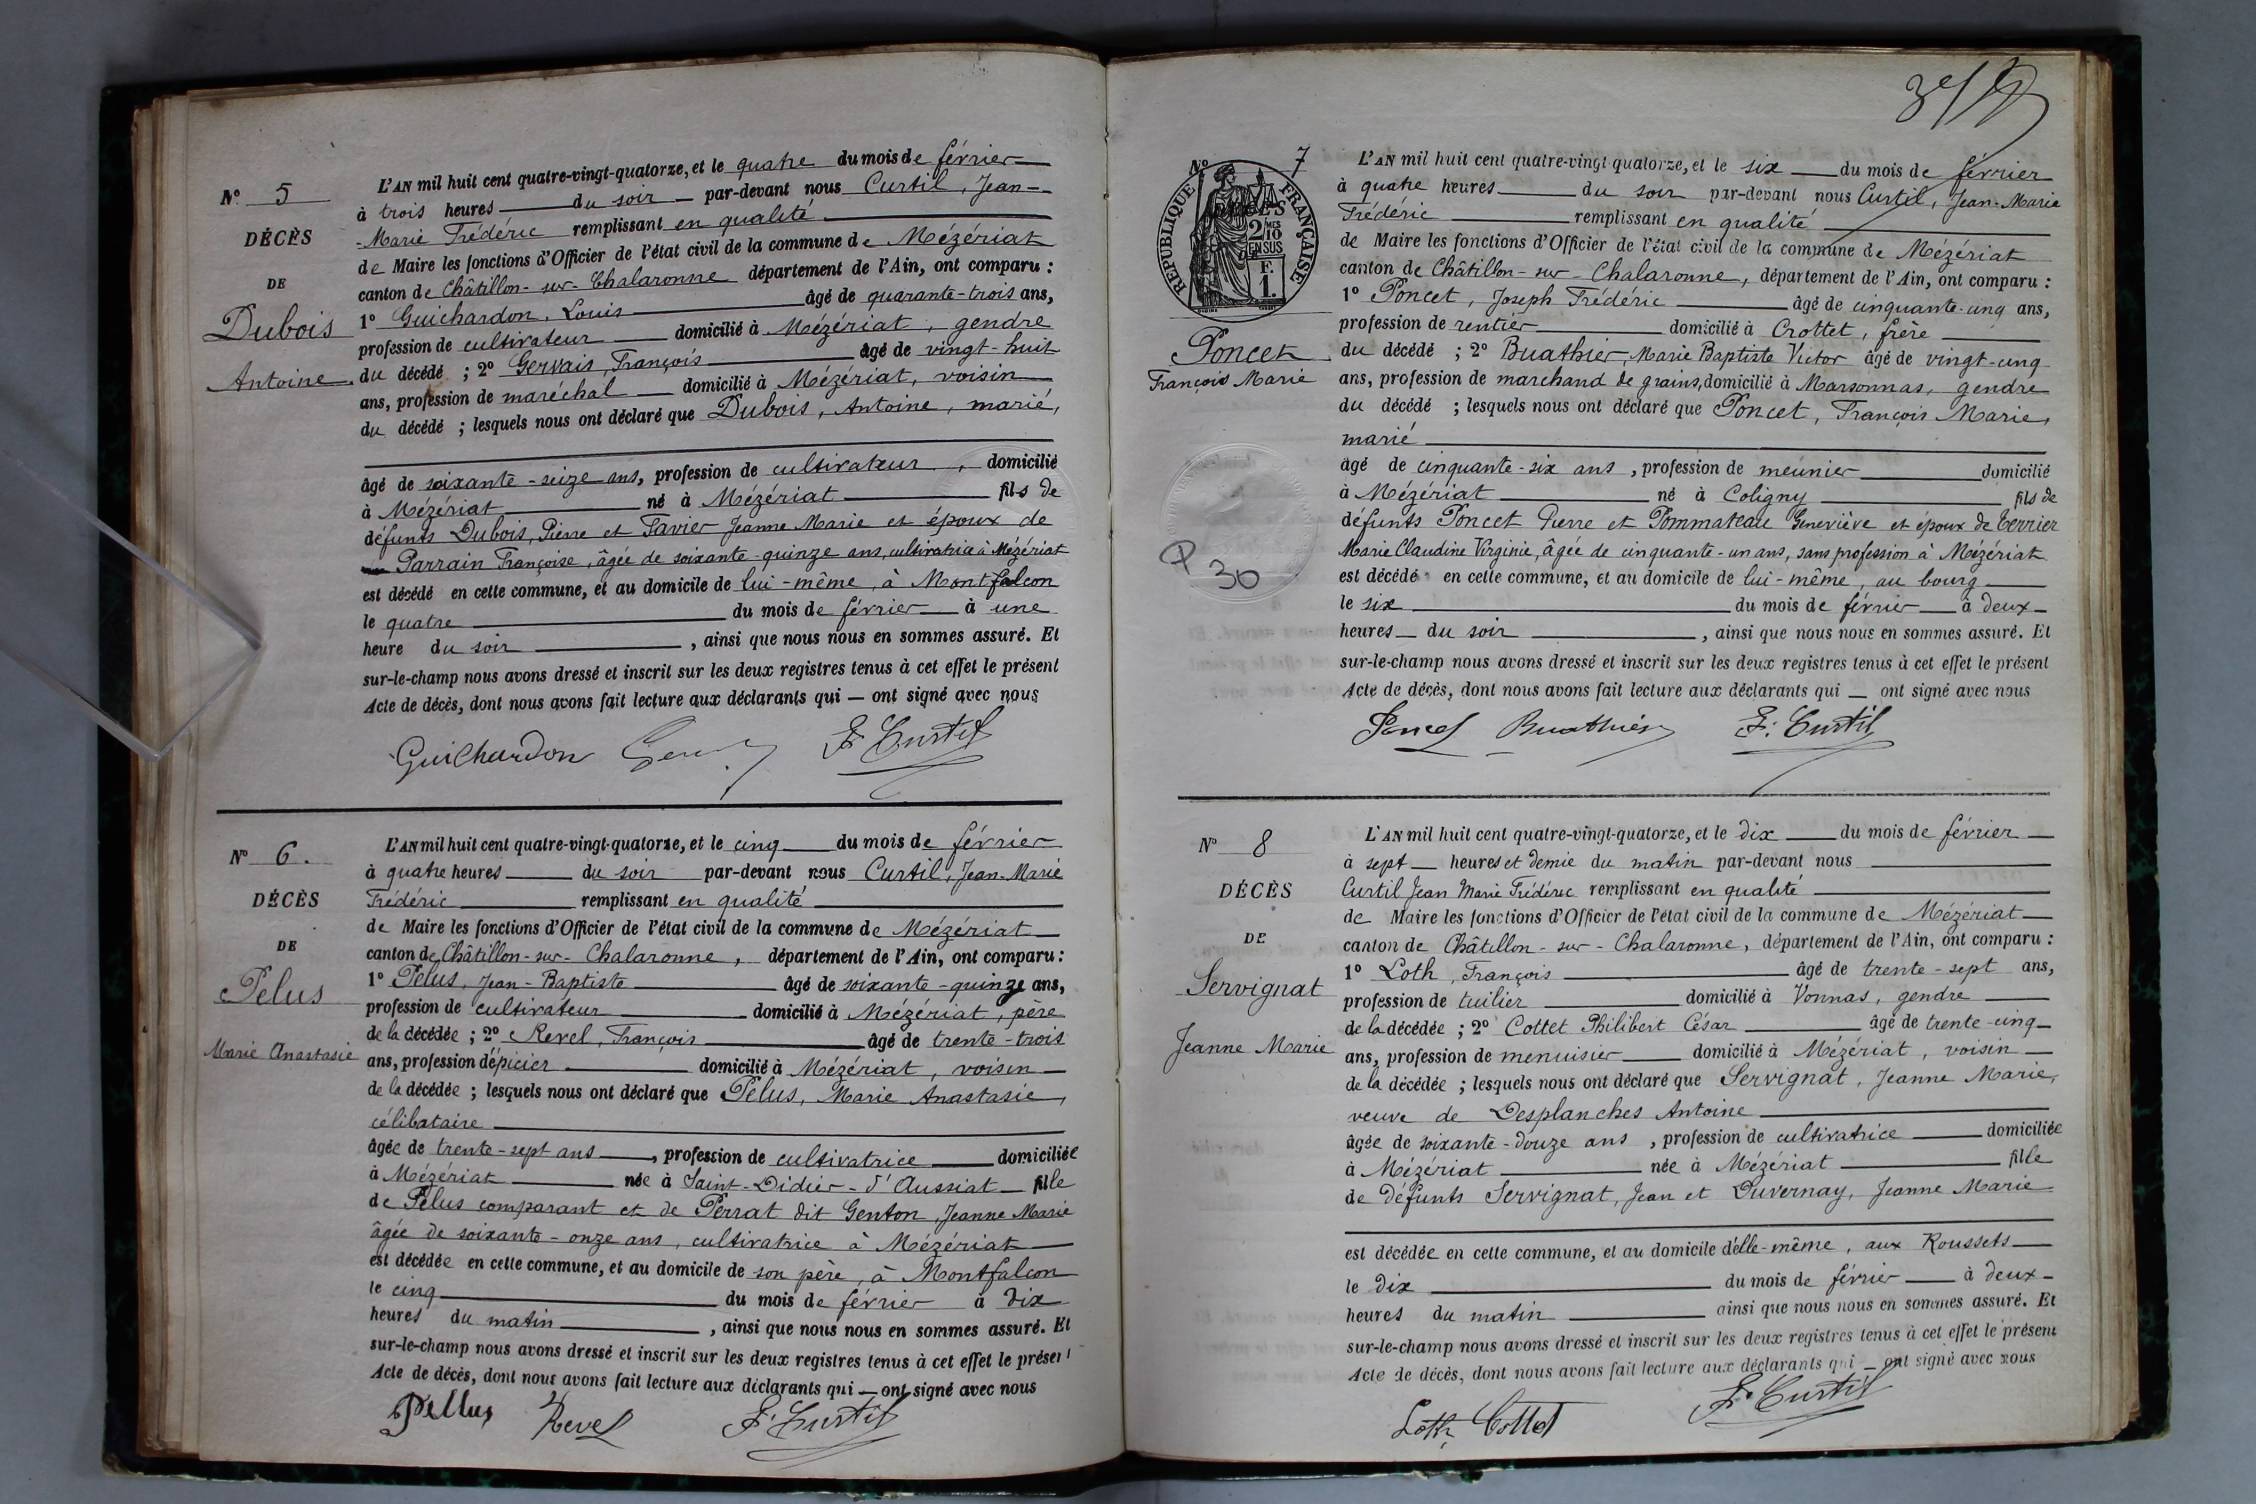 N° 5
DÉCÈS
DE
Dubois
Antoine
L'AN mil huit cent quatre-vingt-quatorze, et le quatre du mois de février
à trois heures du soir par-devant nous Curtil, Jean-
-Marie Frédéric remplissant en qualité
de Maire les fonctions d'Officier de l'état civil de la commune de Mézériat
canton de Châtillon-sur-Chalaronne département de l'Ain, ont comparu :
1° Guichardon, Louis âgé de quarante-trois ans,
profession de cultivateur domicilié à Mézériat, gendre
du décédé ; 2° Gervais, François âgé de vingt-huit
ans, profession de maréchal domicilié à Mézériat, voisin
du décédé ; lesquels nous ont déclaré que Dubois, Antoine, marié,
âgé de soixante-seize ans, profession de cultivateur, domicilié
à Mézériat né à Mézériat fils de
défunts Dubois, Pierre et Favier Jeanne Marie et époux de
Parrain Françoise, âgée de soixante-quinze ans, cultivatrice à Mézériat
est décédé en cette commune, et au domicile de lui-même, à Montfalcon
le quatre du mois de février à une
heure du soir, ainsi que nous nous en sommes assuré. Et
sur-le-champ nous avons dressé et inscrit sur les deux registres tenus à cet effet le présent
Acte de décès, dont nous avons fait lecture aux déclarants qui — ont signé avec nous
Guichardon F. Curtil
N° 6.
DÉCÈS
DE
Pelus
Marie Anastasie
L'AN mil huit cent quatre-vingt-quatorze, et le cinq du mois de février
à quatre heures du soir par-devant nous Curtil, Jean-Marie
Frédéric remplissant en qualité
de Maire les fonctions d'Officier de l'état civil de la commune de Mézériat
canton de Châtillon-sur-Chalaronne, département de l'Ain, ont comparu :
1° Pelus, Jean-Baptiste âgé de soixante-quinze ans,
profession de cultivateur domicilié à Mézériat, père
de la décédée ; 2° Revel, François âgé de trente-trois
ans, profession d'épicier domicilié à Mézériat, voisin
de la décédée ; lesquels nous ont déclaré que Pelus, Marie Anastasie,
célibataire
âgée de trente-sept ans, profession de cultivatrice domiciliée
à Mézériat née à Saint-Didier-d'Aussiat fille
de Pelus comparant et de Perrat dit Genton, Jeanne Marie
âgée de soixante-onze ans, cultivatrice à Mézériat
est décédée en cette commune, et au domicile de son père, à Montfalcon
le cinq du mois de février à dix
heures du matin, ainsi que nous nous en sommes assuré. Et
sur-le-champ nous avons dressé et inscrit sur les deux registres tenus à cet effet le présent
Acte de décès, dont nous avons fait lecture aux déclarants qui — ont signé avec nous
Pellus Revel F. Curtil
N° 7
RÉPUBLIQUE FRANÇAISE
DÉCÈS
2/10 EN SUS
F. 1.
Poncet
François Marie
P 30
L'AN mil huit cent quatre-vingt quatorze, et le six du mois de février
à quatre heures du soir par-devant nous Curtil, Jean-Marie
Frédéric remplissant en qualité
de Maire les fonctions d'Officier de l'état civil de la commune de Mézériat
canton de Châtillon-sur-Chalaronne, département de l'Ain, ont comparu :
1° Poncet, Joseph Frédéric âgé de cinquante-cinq ans,
profession de rentier domicilié à Crottet, frère
du décédé ; 2° Buathier, Marie Baptiste Victor âgé de vingt-cinq
ans, profession de marchand de grains, domicilié à Marsonnas, gendre
du décédé ; lesquels nous ont déclaré que Poncet, François Marie,
marié
âgé de cinquante-six ans, profession de meunier domicilié
à Mézériat né à Coligny fils de
défunts Poncet Pierre et Pommateau Geneviève et époux de Terrier
Marie Claudine Virginie, âgée de cinquante-un ans, sans profession à Mézériat
est décédé en cette commune, et au domicile de lui-même, au bourg
le six du mois de février à deux
heures du soir, ainsi que nous nous en sommes assuré. Et
sur-le-champ nous avons dressé et inscrit sur les deux registres tenus à cet effet le présent
Acte de décès, dont nous avons fait lecture aux déclarants qui — ont signé avec nous
Poncet Buathier F. Curtil
N° 8
DÉCÈS
DE
Servignat
Jeanne Marie
L'AN mil huit cent quatre-vingt-quatorze, et le dix du mois de février
à sept heures et demie du matin par-devant nous
Curtil Jean Marie Frédéric remplissant en qualité
de Maire les fonctions d'Officier de l'état civil de la commune de Mézériat
canton de Châtillon-sur-Chalaronne, département de l'Ain, ont comparu :
1° Loth, François âgé de trente-sept ans,
profession de tuilier domicilié à Vonnas, gendre
de la décédée ; 2° Cottet Philibert César âgé de trente-cinq
ans, profession de menuisier domicilié à Mézériat, voisin
de la décédée ; lesquels nous ont déclaré que Servignat, Jeanne Marie,
veuve de Desplanches Antoine
âgée de soixante-douze ans, profession de cultivatrice domiciliée
à Mézériat née à Mézériat fille
de défunts Servignat, Jean et Duvernay, Jeanne Marie
est décédée en cette commune, et au domicile d'elle-même, aux Roussets
le dix du mois de février à deux
heures du matin ainsi que nous nous en sommes assuré. Et
sur-le-champ nous avons dressé et inscrit sur les deux registres tenus à cet effet le présent
Acte de décès, dont nous avons fait lecture aux déclarants qui — ont signé avec nous
Loth Cottet F. Curtil